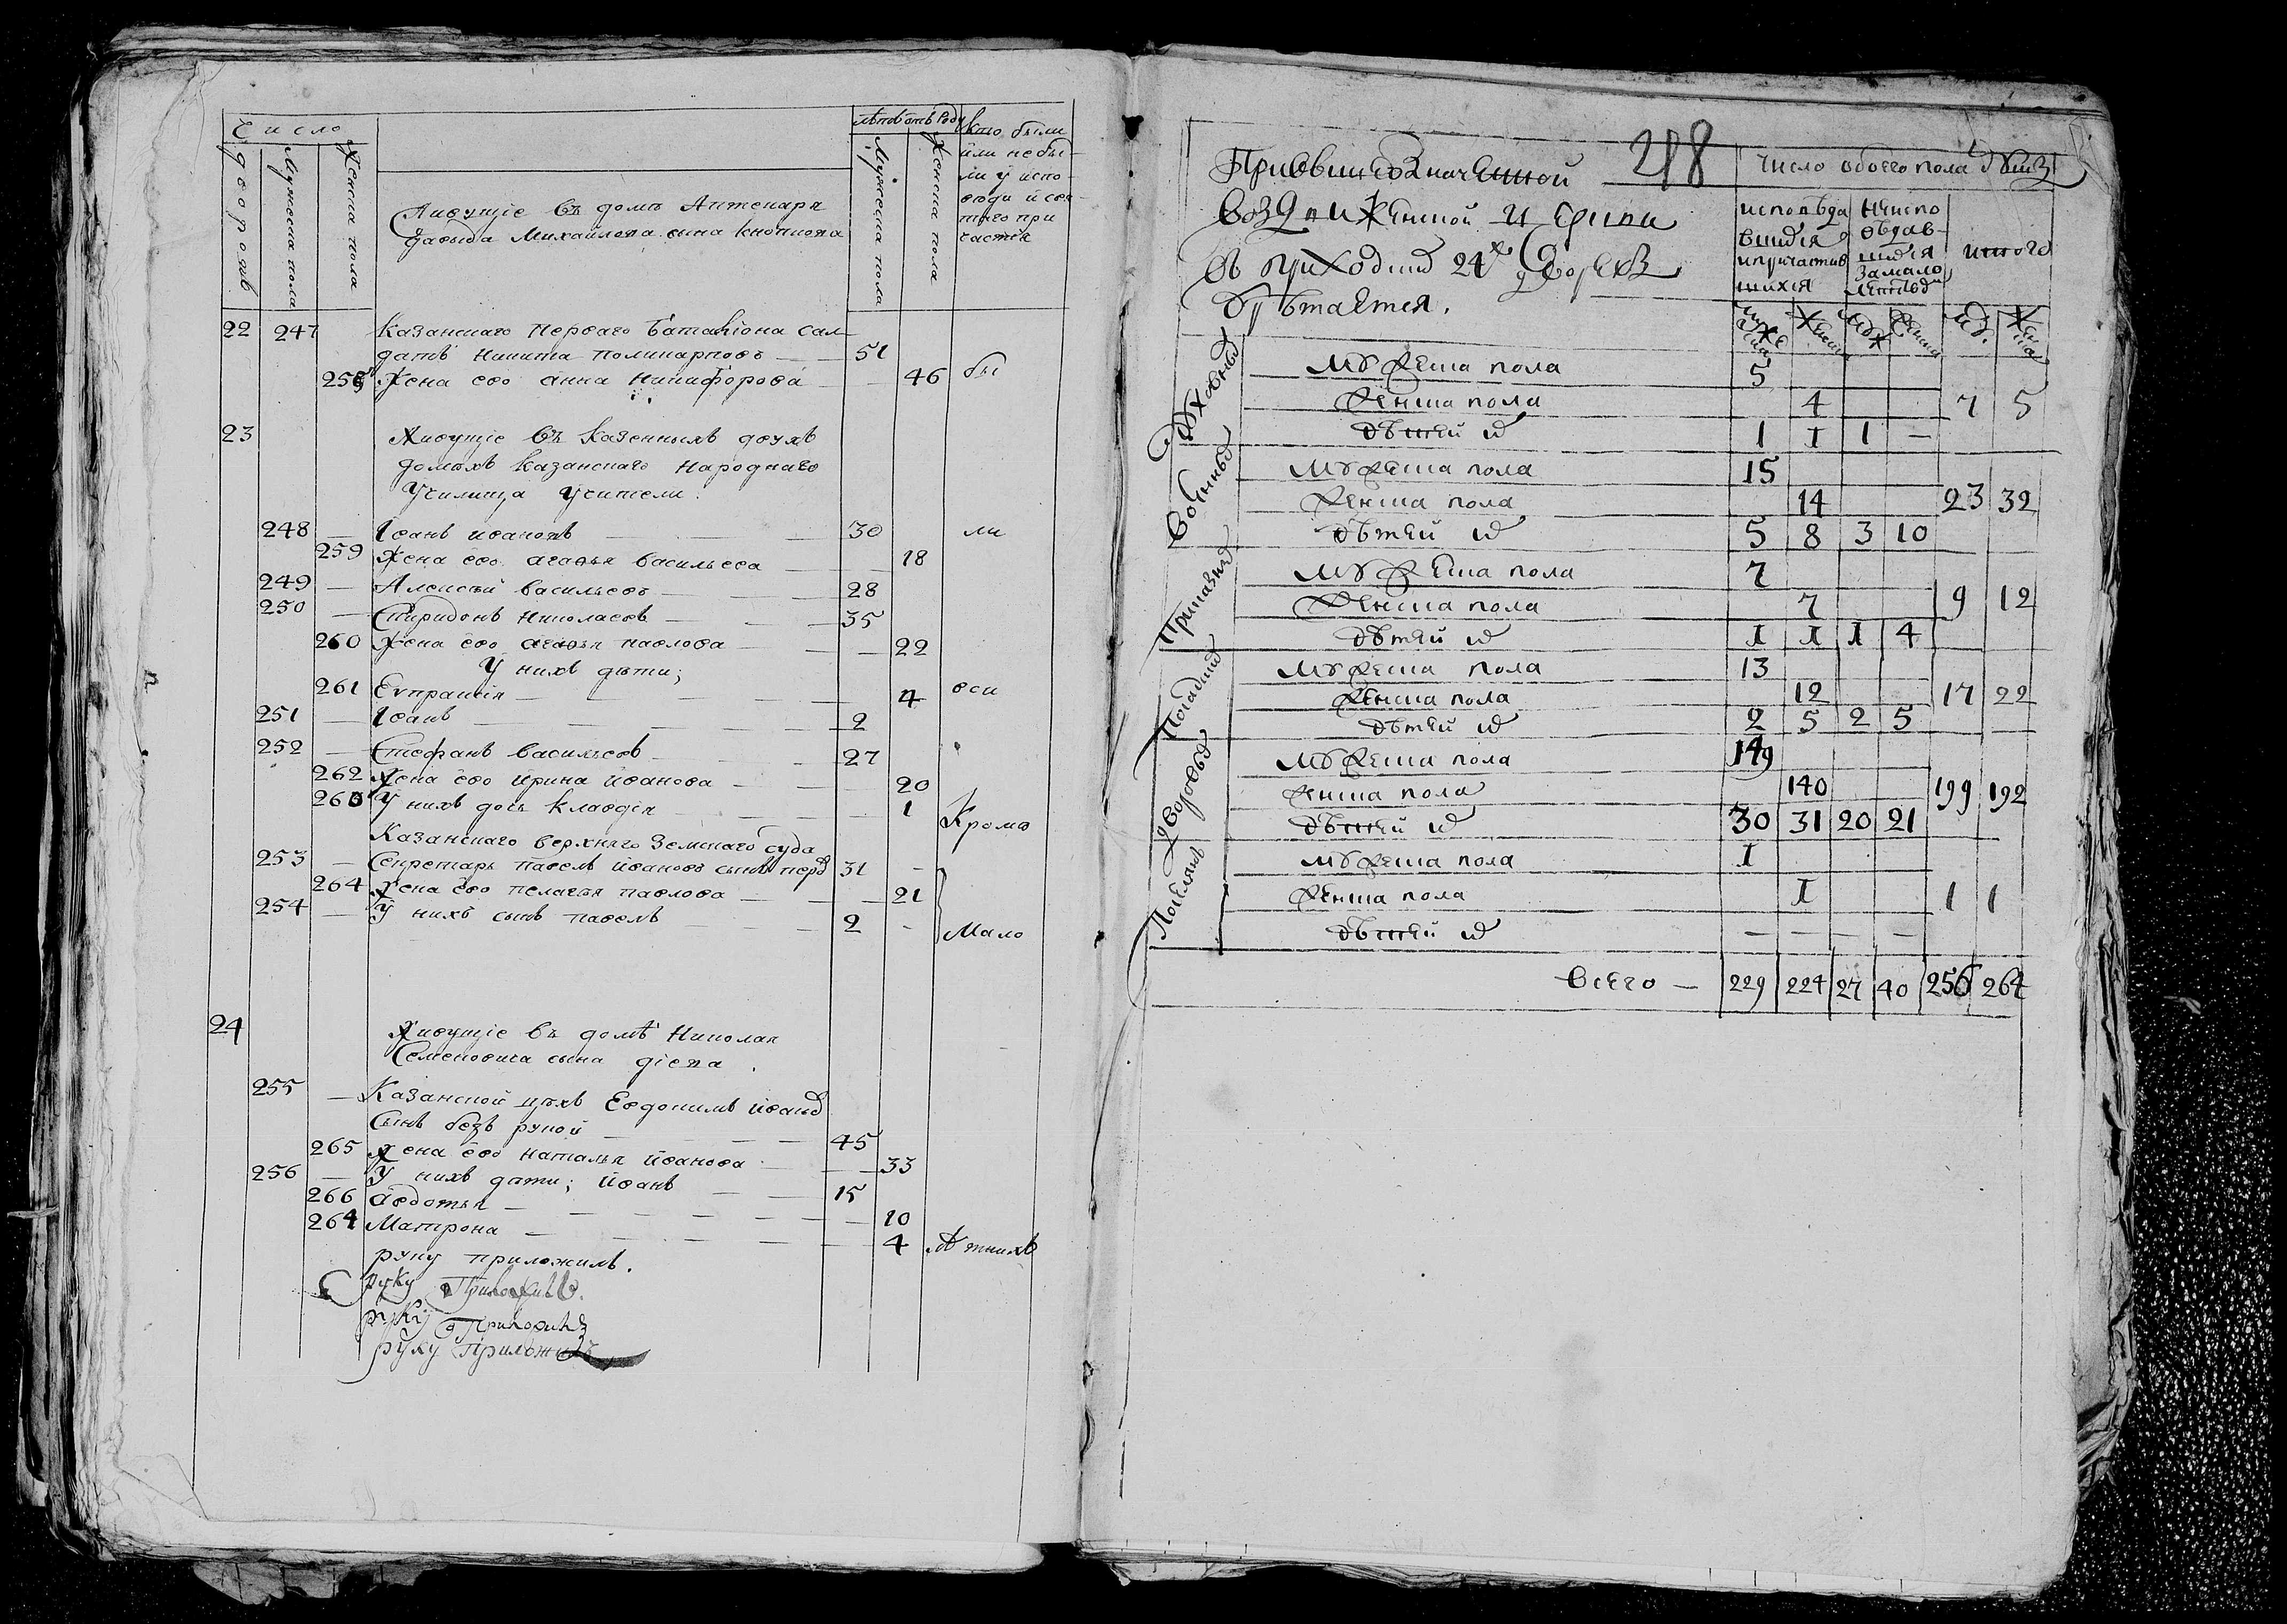 Число
дворовъ
Мужеска пола
Женска пола
лѣтъ отъ роду
Мужеска пола
Женска пола
кто были
или небы-
ли у испо-
веди и свя-
таго при
частія
Живущіе въ домѣ Аптекаря
Давыда Михайлова сына
22 247 Казанскаго перваго баталіона сал-
датъ Никита Поликарповъ 51
258 Жена его Анна Никифорова 46 бы
23 Живущіе въ казенныхъ двухъ
домахъ Казанскаго Народнаго
Училища учители:
248 — Іванъ Ивановъ 30 ли
259 Жена его Агафья Васильева 18
249 — Алексѣй Васильевъ 28
250 — Спиридонъ Николаевъ 35
260 Жена его Агафья Павлова 22
У нихъ дѣти;
261 Евпраксія 4 вси
251 — Іванъ 2
252 — Стефанъ Васильевъ 27
262 Жена его Ирина Иванова 20
263 У нихъ дочь Клавдія 1 Кромѣ
Казанскаго верхняго Земскаго суда
253 — Секретарь Павелъ Ивановъ сынъ 31 -
264 Жена его Пелагѣя Павлова 21
254 — У нихъ сынъ Павелъ 2 - Мало
24 Живущіе въ домѣ Николая
Семеновича сына
255 — Казанской цѣхъ Евдокимъ Ивановъ
Сынъ безъ рукой 45
265 Жена его Наталья Иванова 33
256 — У нихъ дѣти; Иванъ 15
266 Авдотья 10
267 Матрона 4 лѣтнихъ
руку приложилъ.
руку Приложилъ.
руку Приложилъ
руку Приложилъ
При вышеозначенной 248 число обоего пола душъ
воздвиженской церкви
въ приходѣ 24х дворехъ
обрѣтается.
исповѣда
вшихся
ипричастив
шихся
неиспо
вѣдав-
шихся
замало
лѣтствомъ
итого
Духовныхъ
Мужеска пола 5
Женска пола 4 7 5
дѣтей их 1 1 1 —
Военныхъ
Мужеска пола 15
Женска пола 14 23 32
дѣтей их 5 8 3 10
Приказныя
Мужеска пола 7
Женска пола 7 9 12
дѣтей их 1 1 1 4
Посадскихъ
Мужеска пола 13
Женска пола 12 17 22
дѣтей их 2 5 2 5
Дворовыя
Мужеска пола 149
Женска пола 140 199 192
дѣтей их 30 31 20 21
Поселянъ
Мужеска пола 1
Женска пола 1 1 1
дѣтей их — — — —
Всего — 229 224 27 40 256 264